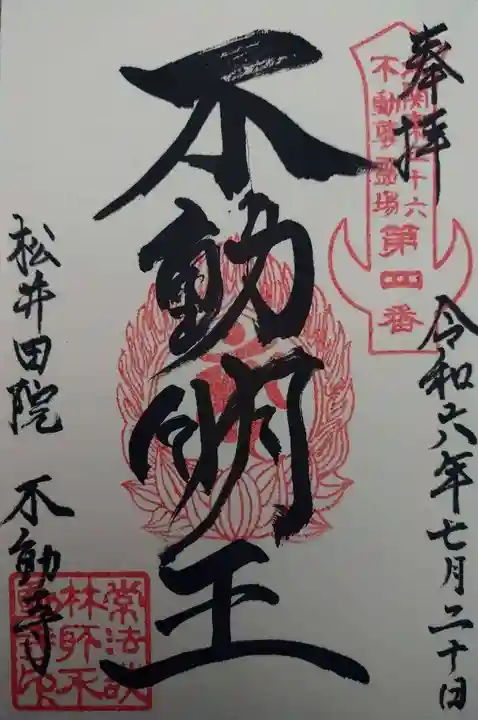 奉拝
北関東三十六
不動尊霊場
第四番
令和六年七月二十日
不動明王
松井田院 不動寺